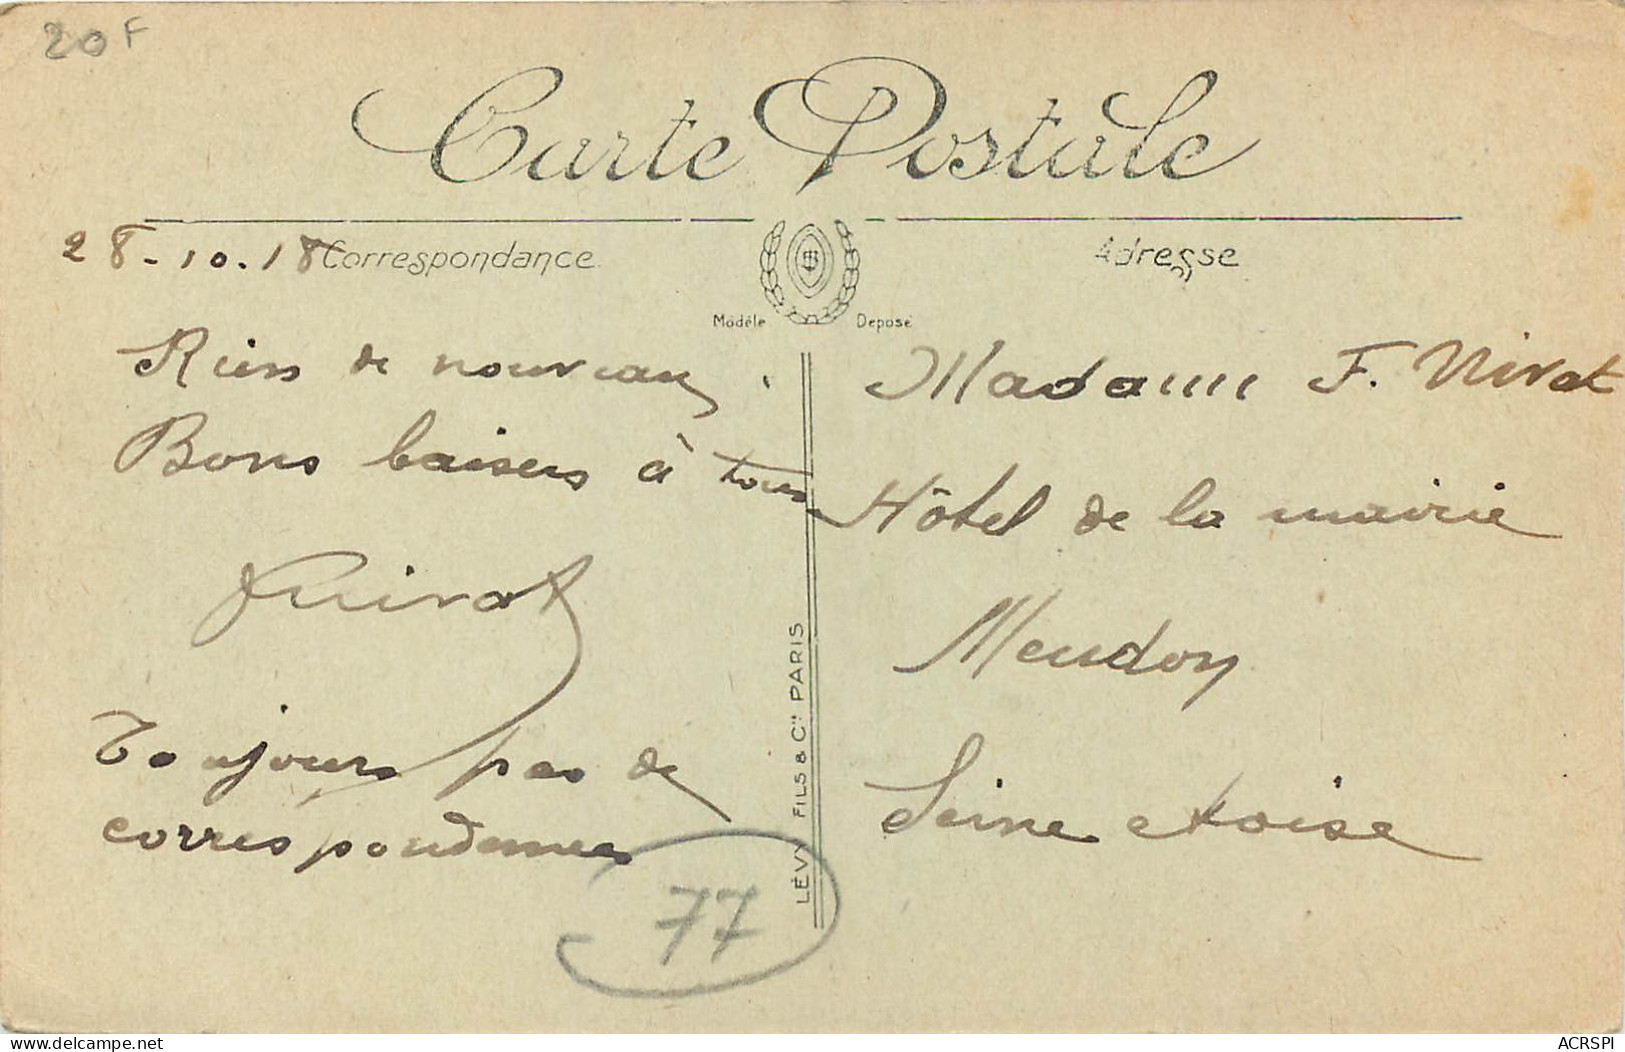 20F
Carte Postale
28-10.18
Correspondance
Adresse
Modèle Deposé
Rien de nouveau.
Bons baisers à tous
Toujours pas de
correspondances
LÉVY FILS & Cie PARIS
Madame F. Nivat
Hôtel de la mairie
Meudon
Seine et oise
77
ACRSPI